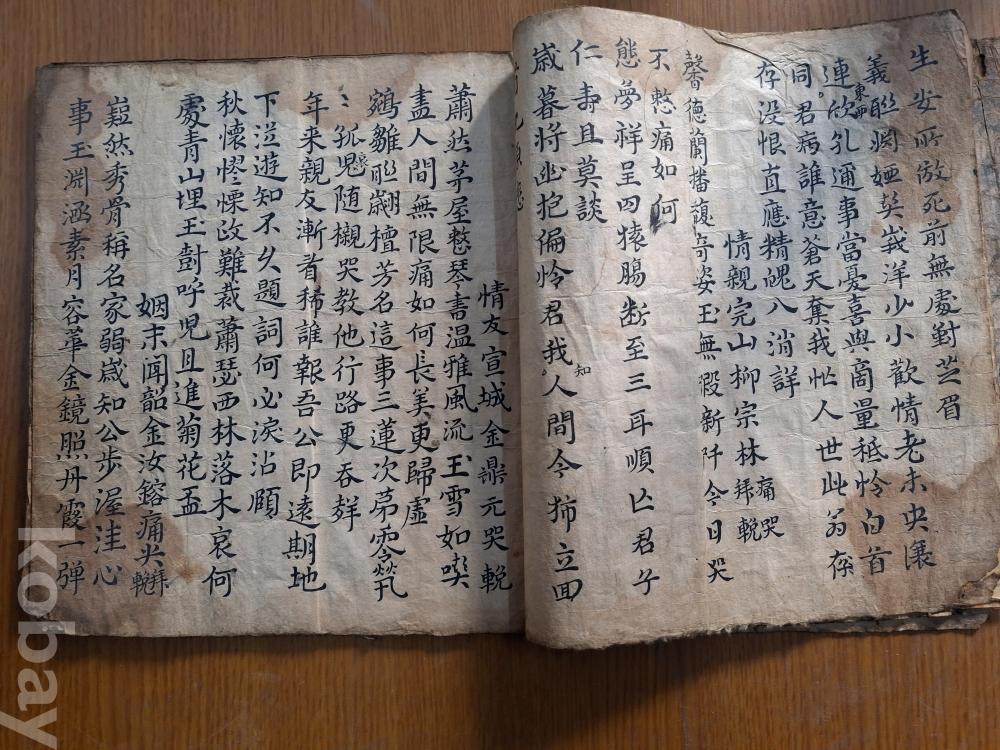 生安所做死前無處對芝眉
義聯
姻婭莫峩洋少小歡情老未央
連欣孔邇事當憂喜與商量秪怜白首
東西
同君病誰意蒼天奪我忙人世此翁存
存没恨直應精魄入消詳
情親完山柳宗林痛哭拜輓
馨德蘭播馥奇姿玉無瑕新阡今日哭
不愁痛如何
態夢祥呈四猿膓断至三耳順亡君子
仁壽且莫談
歲暮將幽抱偏怜君我人問今獨立回
知
情友宣城金鼎元哭輓
蕭然茅屋愁琴書温雅風流玉雪如喫
盡人間無限痛如何長美更歸虛
鵷雛翽檀芳名這事三蓮次第零㷀
孤兒随櫬哭教他行路更吞
年来親友漸看稀誰報吾公即遠期地
下逆遊知不久題詞何必淚沾頤
秋懷憀慄改難裁蕭瑟西林落木哀何
處青山埋玉對呼兒且進菊花盃
姻末聞韶金汝鎔痛哭拜輓
嶷然秀骨稱名家弱歲知公步渥洼心
事玉淵涵素月容華金鏡照丹霞一弾
kobay